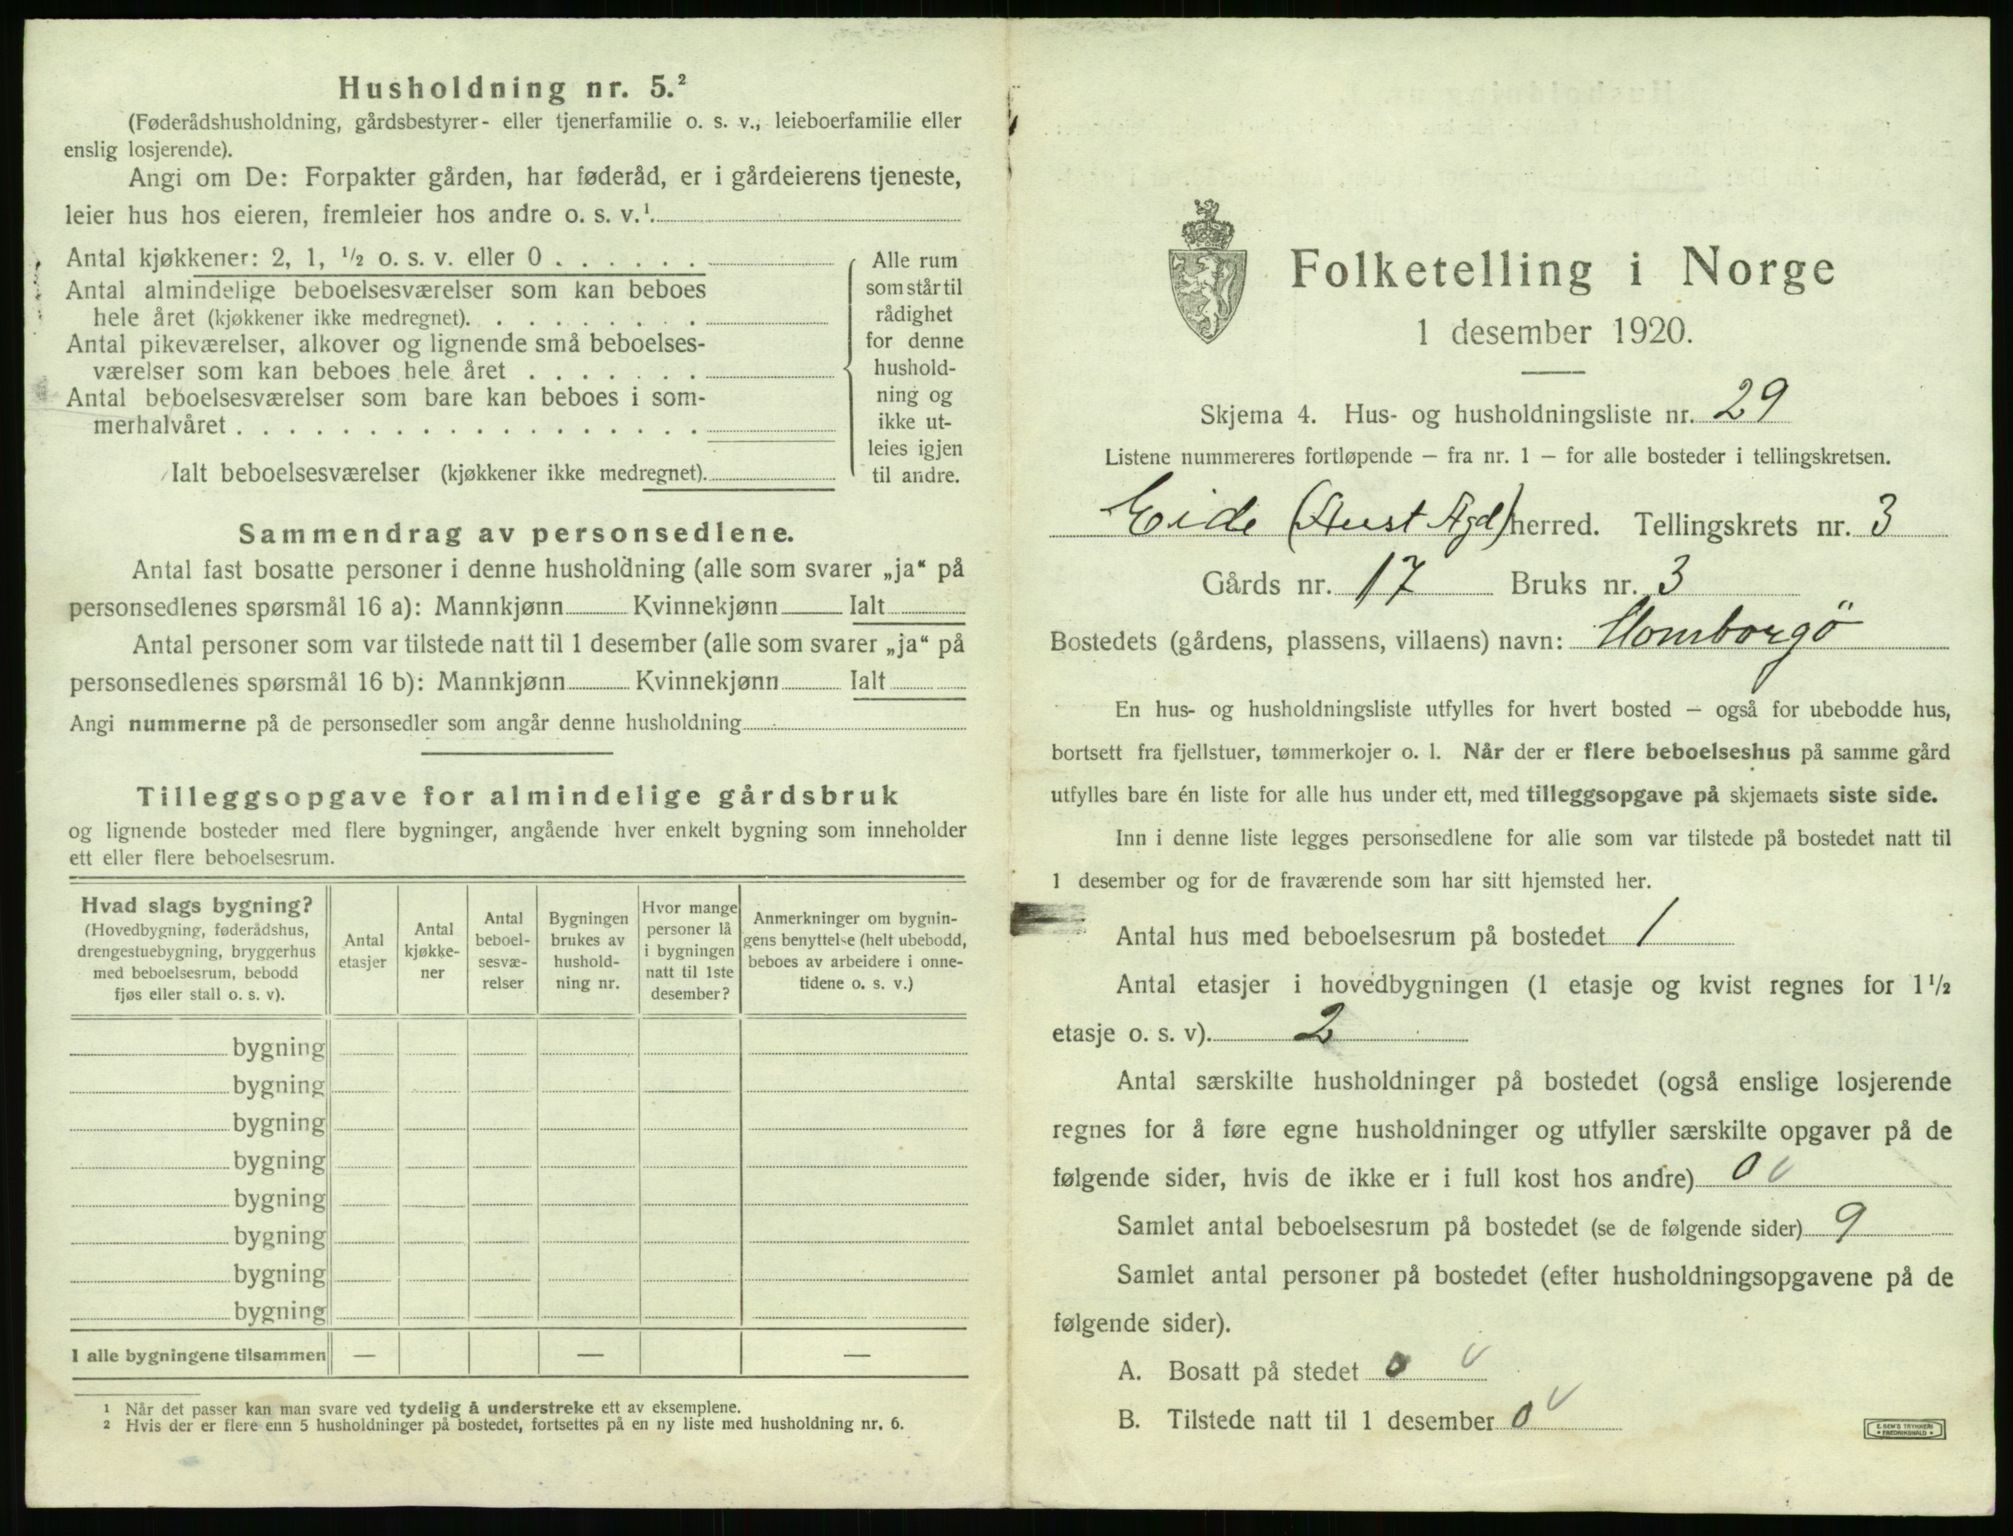 Husholdning nr. 5.²
(Føderådshusholdning, gårdsbestyrer- eller tjenerfamilie o. s. v., leieboerfamilie eller
enslig losjerende).
Angi om De: Forpakter gården, har føderåd, er i gårdeierens tjeneste,
leier hus hos eieren, fremleier hos andre o. s. v.¹
Antal kjøkkener: 2, 1, ½ o. s. v. eller 0 . . . . . .
Antal almindelige beboelsesværelser som kan beboes
hele året (kjøkkener ikke medregnet). . . . . . . . .
Antal pikeværelser, alkover og lignende små beboelses-
værelser som kan beboes hele året . . . . . . .
Antal beboelsesværelser som bare kan beboes i som-
merhalvåret . . . . . . . . . . . . . . . . . .
Ialt beboelsesværelser (kjøkkener ikke medregnet).
Alle rum
som står til
rådighet
for denne
hushold-
ning og
ikke ut-
leies igjen
til andre.
Sammendrag av personsedlene.
Antal fast bosatte personer i denne husholdning (alle som svarer „ja“ på
personsedlenes spørsmål 16 a): Mannkjønn Kvinnekjønn Ialt
Antal personer som var tilstede natt til 1 desember (alle som svarer „ja“ på
personsedlenes spørsmål 16 b): Mannkjønn Kvinnekjønn Ialt
Angi nummerne på de personsedler som angår denne husholdning
Tilleggsopgave for almindelige gårdsbruk
og lignende bosteder med flere bygninger, angående hver enkelt bygning som inneholder
ett eller flere beboelsesrum.
Hvad slags bygning?
(Hovedbygning, føderådshus,
drengestuebygning, bryggerhus
med beboelsesrum, bebodd
fjøs eller stall o. s. v).
Antal
etasjer
Antal
kjøkke-
ner
Antal
beboel-
sesvæ-
relser
Bygningen
brukes av
hushold-
ning nr.
Hvor mange
personer lå
i bygningen
natt til 1ste
desember?
Anmerkninger om bygnin-
gens benyttelse (helt ubebodd,
beboes av arbeidere i onne-
tidene o. s. v.)
bygning
bygning
bygning
bygning
bygning
bygning
bygning
bygning
I alle bygningene tilsammen — — —
¹ Når det passer kan man svare ved tydelig å understreke ett av eksemplene.
² Hvis der er flere enn 5 husholdninger på bostedet, fortsettes på en ny liste med husholdning nr. 6.
Folketelling i Norge
1 desember 1920.
Skjema 4. Hus- og husholdningsliste nr. 29
Listene nummereres fortløpende – fra nr. 1 – for alle bosteder i tellingskretsen.
Eide (Aust Agd) herred. Tellingskrets nr. 3
Gårds nr. 17 Bruks nr. 3
Bostedets (gårdens, plassens, villaens) navn: Homborgö
En hus- og husholdningsliste utfylles for hvert bosted – også for ubebodde hus,
bortsett fra fjellstuer, tømmerkojer o. l. Når der er flere beboelseshus på samme gård
utfylles bare én liste for alle hus under ett, med tilleggsopgave på skjemaets siste side.
Inn i denne liste legges personsedlene for alle som var tilstede på bostedet natt til
1 desember og for de fraværende som har sitt hjemsted her.
Antal hus med beboelsesrum på bostedet 1
Antal etasjer i hovedbygningen (1 etasje og kvist regnes for 1½
etasje o. s. v). 2
Antal særskilte husholdninger på bostedet (også enslige losjerende
regnes for å føre egne husholdninger og utfyller særskilte opgaver på de
følgende sider, hvis de ikke er i full kost hos andre) 0
Samlet antal beboelsesrum på bostedet (se de følgende sider) 9
Samlet antal personer på bostedet (efter husholdningsopgavene på de
følgende sider).
A. Bosatt på stedet 0
B. Tilstede natt til 1 desember 0
E. SEM'S TRYKKERI
FREDRIKSHALD